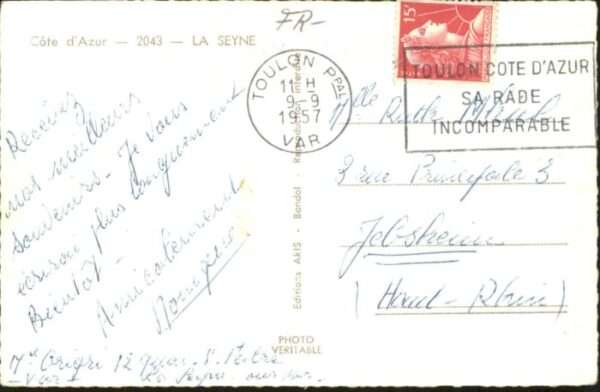 FR-
Côte d'Azur — 2043 — LA SEYNE
15F
TOULON PPAL
11 H
9-9
1957
VAR
TOULON COTE D'AZUR
SA RADE
INCOMPARABLE
Recevez
nos meilleurs
souvenirs. Je vous
écrirai plus longuement
Bientôt -
Amicalement
Editions ARIS - Bandol - Reproduction interdite
Mlle Ruth
3 rue Principale 3
Jebsheim
(Haut-Rhin)
PHOTO
VERITABLE
12 Quai
- Var -